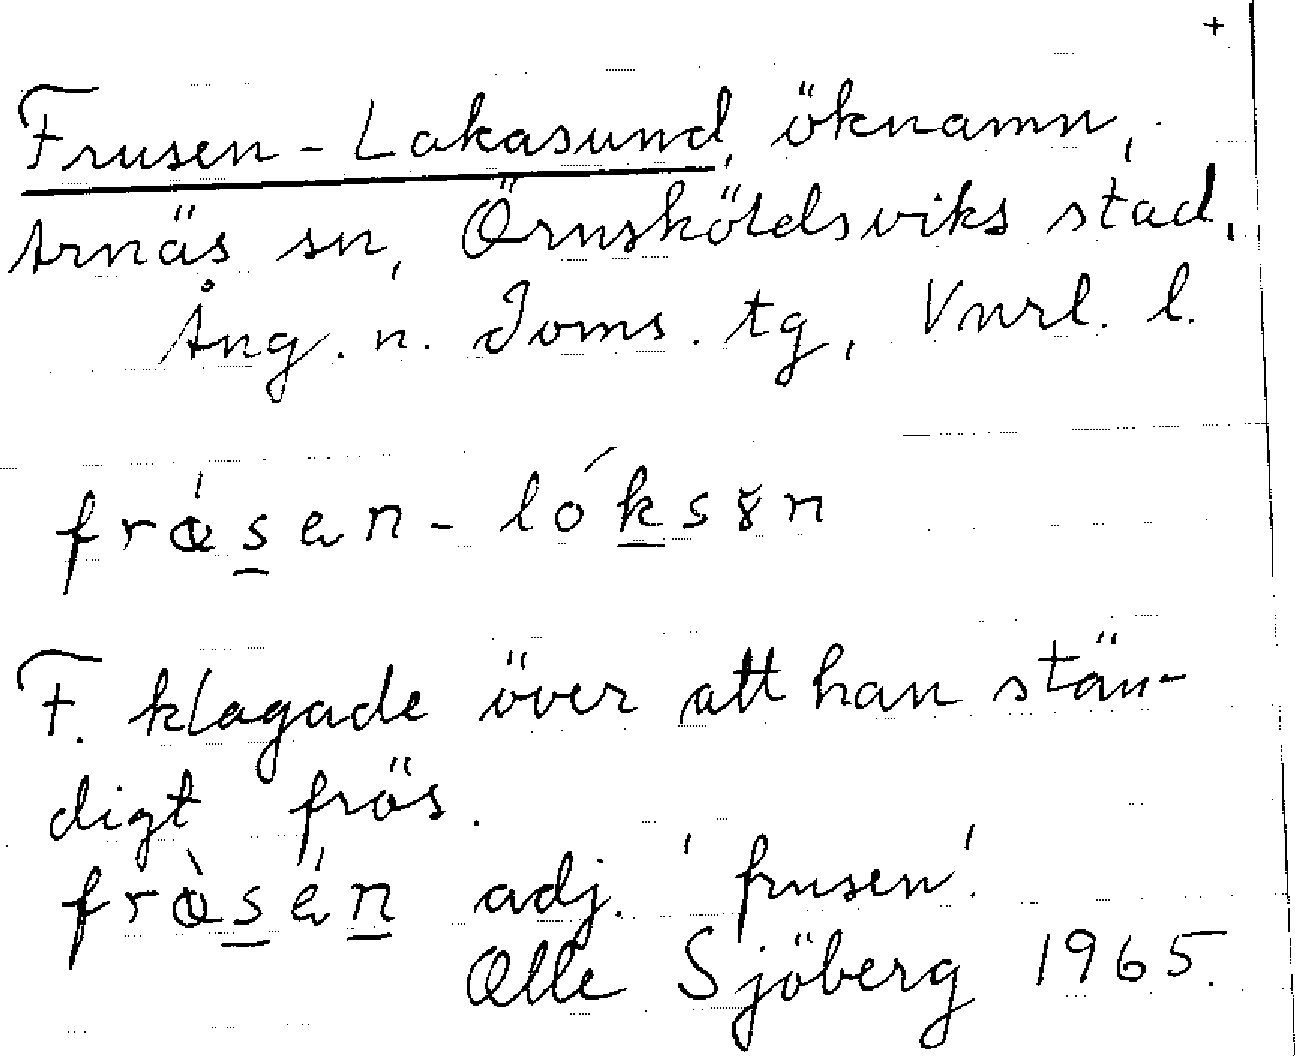 +
Frusen-Lakasund, öknamn,
Arnäs sn, Örnsköldsviks stad,
Ång. n. Doms. tg, Vnrl. l.
frɷ́sen-lóksɤn
F. klagade över att han stän-
digt frös.
frɷ̀sén adj. 'frusen'.
Olle Sjöberg 1965.